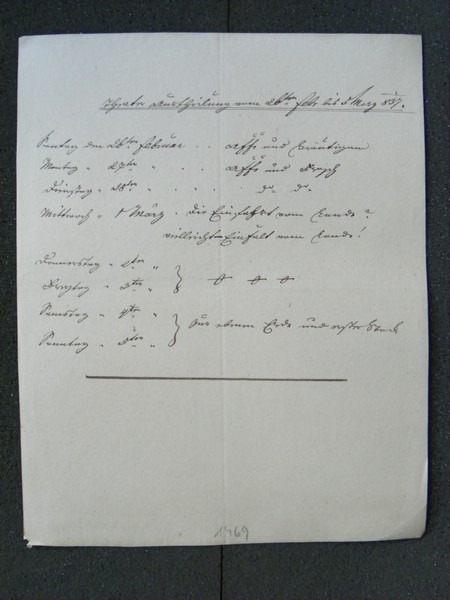 Theater Austheilung vom 26ten Febr bis 5 März 837.
Sontag den 26ten Februar . . Affe und Bräutigam
Montag " 27ten " . . . Affe und Frosch
Dienstag " 28ten " . . . do. do.
Mittwoch " 1 März . Die Einfahrt vom Lande ?
vielleicht Einfalt vom Lande !
Donnerstag " 2ten "
Freytag " 3ten "
Samstag " 4ten " Zur ebenen Erde und erster Stock
Sonntag " 5ten "
1/769